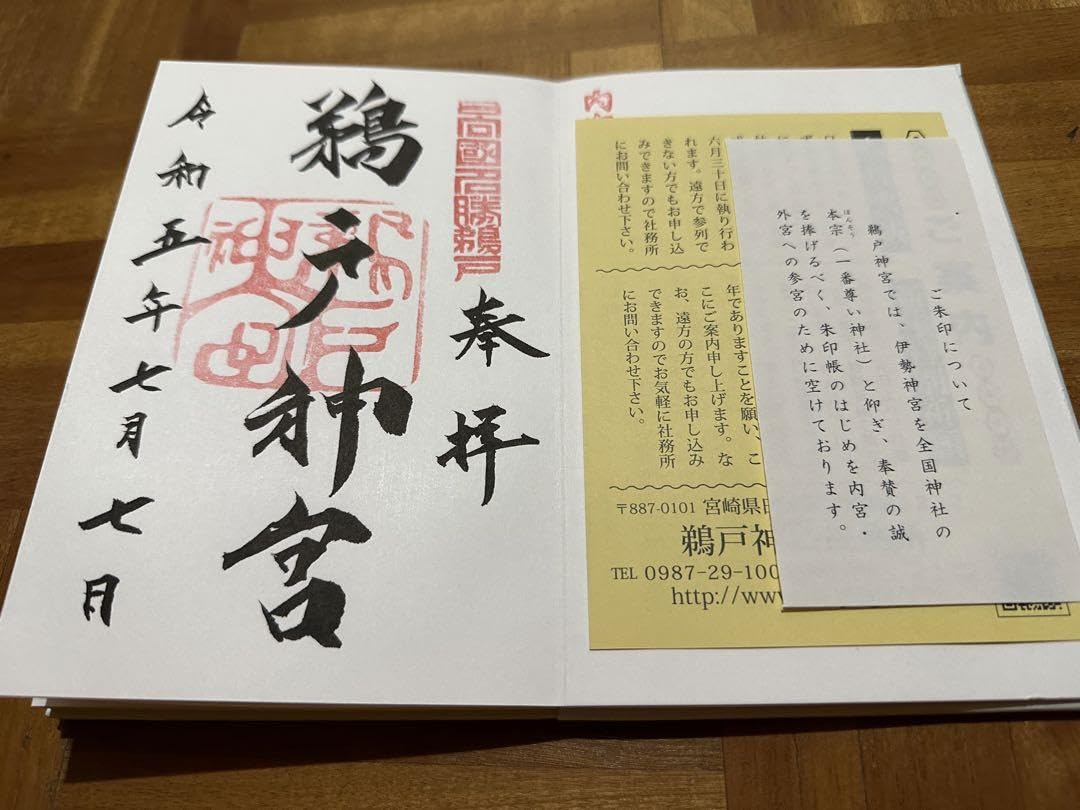 奉拝
鵜戸神宮
令和五年七月七日
日向國名勝鵜戸
鵜戸神宮
内
ご朱印について
鵜戸神宮では、伊勢神宮を全国神社の
ほんそう
本宗（一番尊い神社）と仰ぎ、奉賛の誠
を捧げるべく、朱印帳のはじめを内宮・
外宮への参宮のために空けております。
六月三十日に執り行わ
れます。遠方で参列で
きない方でもお申し込
みできますので社務所
にお問い合わせ下さい。
年でありますことを願い、こ
こにご案内申し上げます。な
お、遠方の方でもお申し込み
できますのでお気軽に社務所
にお問い合わせ下さい。
〒887-0101 宮崎県
鵜戸神
TEL 0987-29-100
http://www